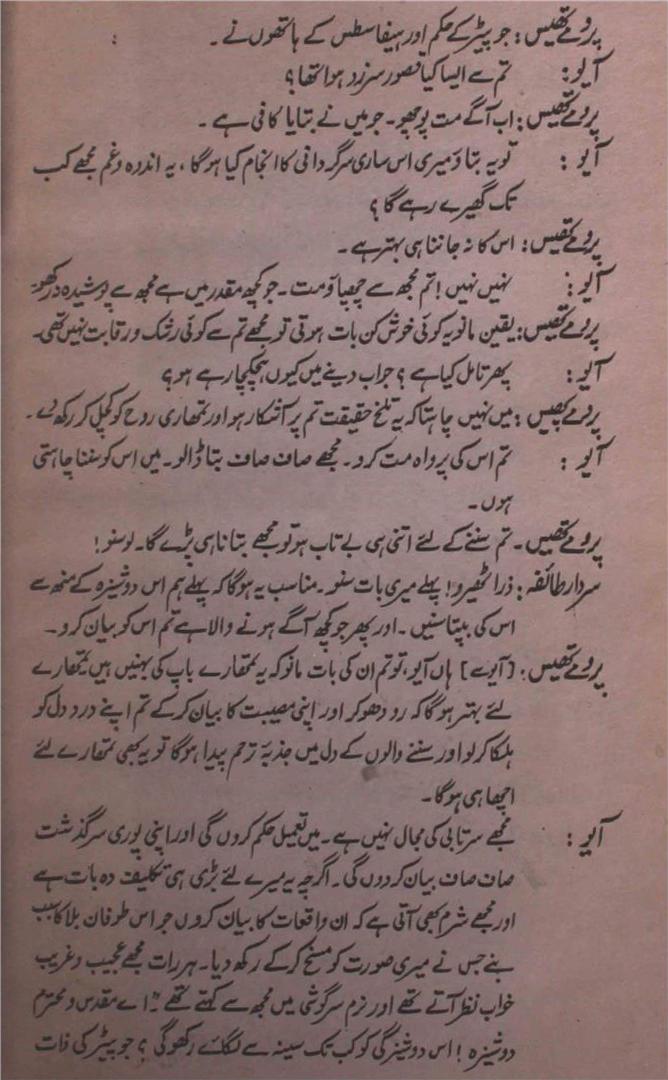 پرومے تھیس: جوپیٹر کے حکم اور ہیفاسٹس کے ہاتھوں نے۔
آیو: تم سے ایسا کیا قصور سرزد ہوا تھا؟
پرومے تھیس: اب آگے مت پوچھو۔ جو میں نے بتایا کافی ہے۔
آیو: تو یہ بتاؤ میری اس ساری سرگردانی کا انجام کیا ہوگا، یہ اندوہ و غم مجھے کب
تک گھیرے رہے گا؟
پرومے تھیس: اس کا نہ جاننا ہی بہتر ہے۔
آیو: نہیں نہیں! تم مجھ سے چھپاؤ مت۔ جو کچھ مقدر میں ہے مجھ سے پوشیدہ نہ رکھو۔
پرومے تھیس: یقین مانو یہ کوئی خوش کن بات ہوتی تو مجھے تم سے کوئی رشک و رقابت نہیں تھی۔
آیو: پھر تامل کیا ہے؟ جواب دینے میں کیوں ہچکچا رہے ہو؟
پرومے تھیس: میں نہیں چاہتا کہ یہ تلخ حقیقت تم پر آشکار ہو اور تمھاری روح کو کچل کر رکھ دے۔
آیو: تم اس کی پرواہ مت کرو۔ مجھے صاف صاف بتا ڈالو۔ میں اس کو سننا چاہتی
ہوں۔
پرومے تھیس۔ تم سننے کے لئے اتنی ہی بے تاب ہو تو مجھے بتانا ہی پڑے گا۔ لو سنو!
سردار طائفہ: ذرا ٹھیرو! پہلے میری بات سنو۔ مناسب یہ ہوگا کہ پہلے ہم اس دوشیزہ کے منھ سے
اس کی بپتا سنیں۔ اور پھر جو کچھ آگے ہونے والا ہے تم اس کو بیان کرو۔
پرومے تھیس: [آیو سے] ہاں آیو، تو تم ان کی بات مانو کہ یہ تمھارے باپ کی بہنیں ہیں تمھارے
لئے بہتر ہوگا کہ رو دھو کر اور اپنی مصیبت کا بیان کر کے تم اپنے درد دل کو
ہلکا کر لو اور سننے والوں کے دل میں جذبۂ ترحم پیدا ہوگا تو یہ بھی تمھارے لئے
اچھا ہی ہوگا۔
آیو: مجھے سرتابی کی مجال نہیں ہے۔ میں تعمیل حکم کروں گی اور اپنی پوری سرگذشت
صاف صاف بیان کر دوں گی۔ اگرچہ یہ میرے لئے بڑی ہی تکلیف دہ بات ہے
اور مجھے شرم بھی آتی ہے کہ ان واقعات کا بیان کروں جو اس طوفان بلا کا سبب
بنے جس نے میری صورت کو مسخ کر کے رکھ دیا۔ ہر رات مجھے عجیب و غریب
خواب نظر آتے تھے اور نرم سرگوشی میں مجھ سے کہتے تھے "اے مقدس و محترم
دوشیزہ! اس دوشیزگی کو کب تک سینہ سے لگائے رکھو گی؟ جوپیٹر کی ذات